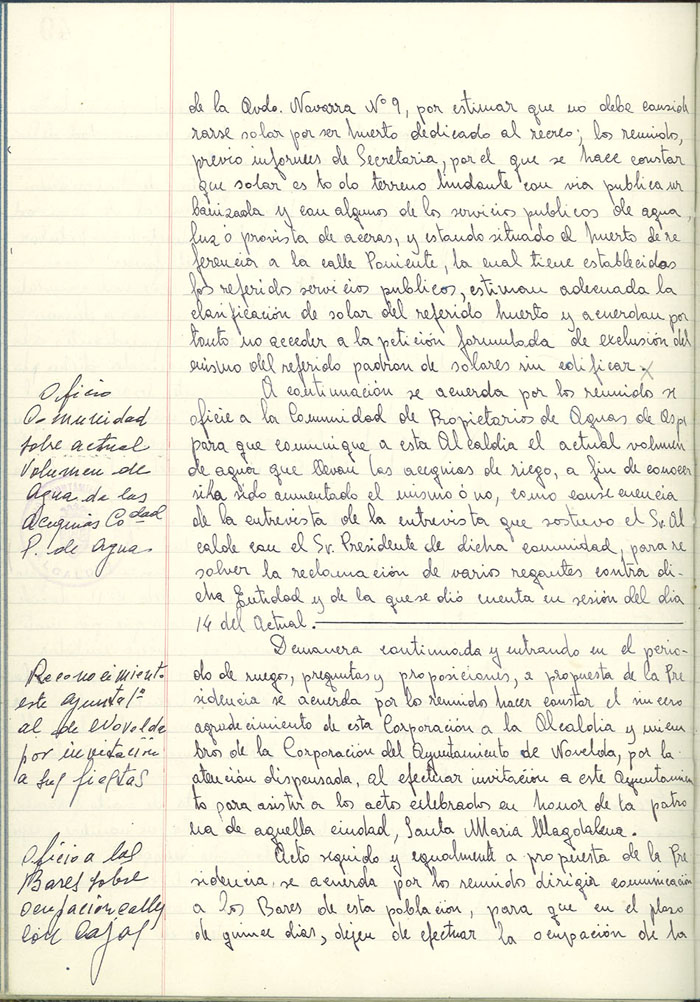 de la Avda. Navarra Nº 9, por estimar que no debe conside
rarse solar por ser huerto dedicado al recreo; los reunidos,
previo informes de Secretaria, por el que se hace constar
que solar es todo terreno lindante con via publica ur
banizada y con algunos de los servicios publicos de agua,
luz ó provista de aceras, y estando situado el huerto de re
ferencia a la calle Poniente, la cual tiene establecidos
los referidos servicios publicos, estiman adecuada la
clasificación de solar del referido huerto y acuerdan por
tanto no acceder a la petición formulada de exclusión del
mismo del referido padron de solares sin edificar.
Oficio
Comunidad
sobre actual
Volumen de
Agua de las
Acequias Co dad
P. de Aguas
A continuación se acuerda por los reunido se
oficie a la Comunidad de Propietarios de Aguas de Aspe
para que comunique a esta Alcaldia el actual volumen
de agua que llevan las acequias de riego, a fin de conocer
si ha sido aumentado el mismo ó no, como consecuencia
de la entrevista de la entrevista que sostuvo el Sr. Al
calde con el Sr. Presidente de dicha comunidad, para re
solver la reclamación de varios regantes contra di
cha Entidad y de la que se dió cuenta en sesión del dia
14 del Actual.
Reconocimiento
este ayunta/º
al de Novelda
por invitacion
a sus fiestas
De manera continuada y entrando en el perio-
do de ruegos, preguntas y proposiciones, a propuesta de la Pre
sidencia se acuerda por los reunidos hacer constar el sincero
agradecimiento de esta Corporación a la Alcaldia y miem
bros de la Corporación del Ayuntamiento de Novelda, por la
atención dispensada, al efectuar invitación a este Ayuntamien
to para asistir a los actos celebrados en honor de la patro
na de aquella ciudad, Santa Maria Magdalena.
Oficio a los
Bares sobre
ocupación calles
con Cajas
Acto seguido y egualmente a propuesta de la Pre
sidencia, se acuerda por los reunidos dirigir comunicación
a los Bares de esta población, para que en el plazo
de quince dias, dejen de efectuar la ocupación de la